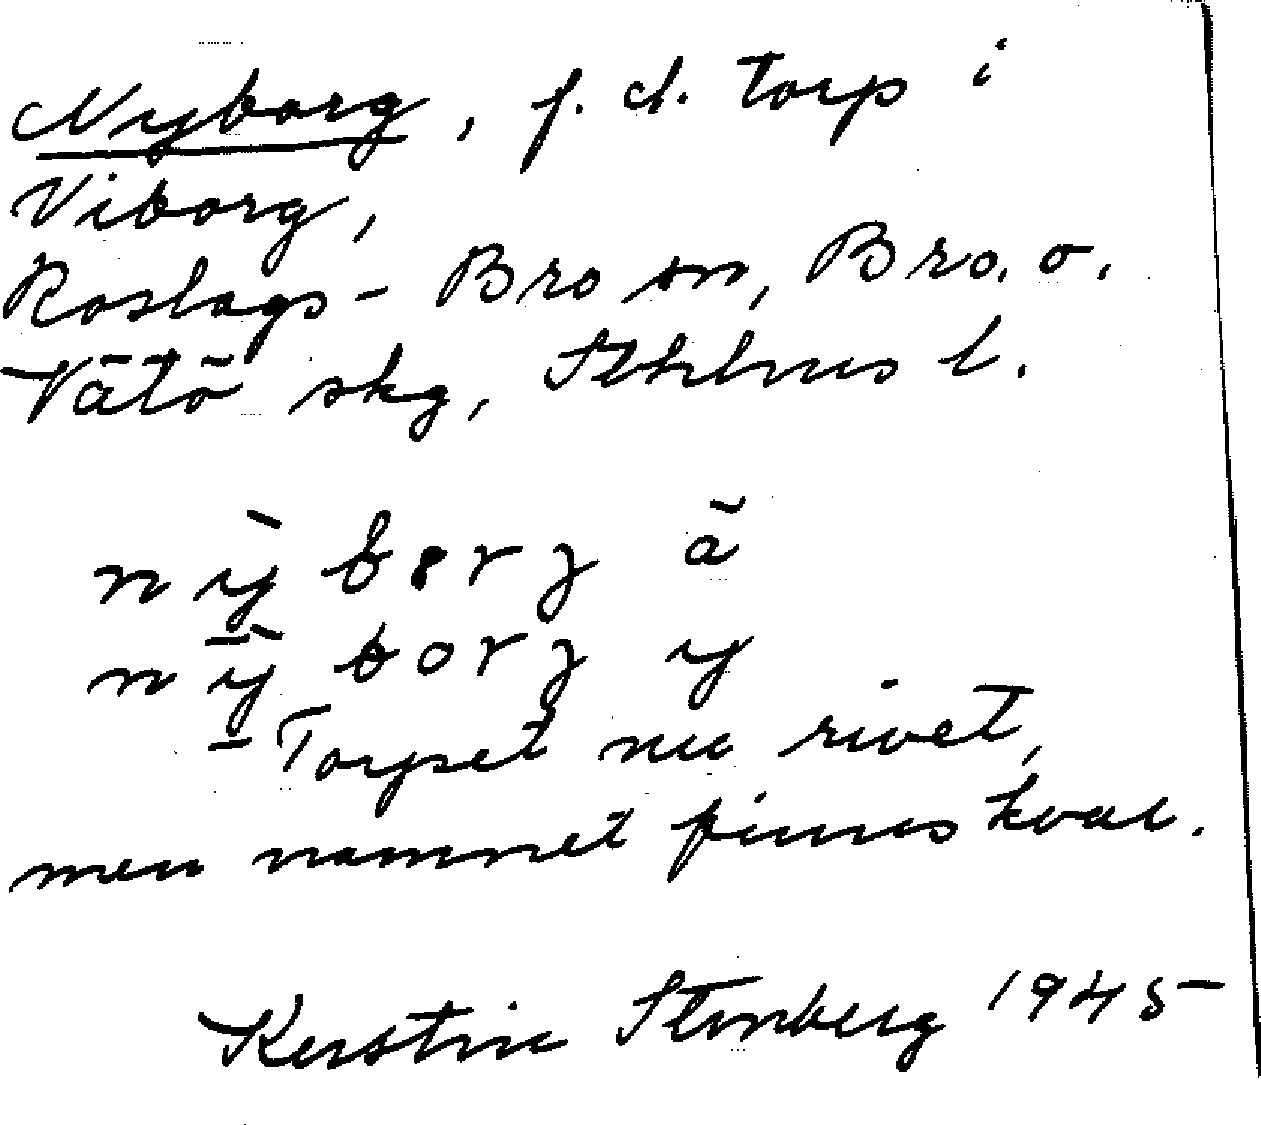 Nyborg, f. d. torp i
Viborg,
Roslags-Bro sn, Bro o.
Vätö skg, Sthlms l.
nỳborʒ ä
nȳ̀borʒ y
- Torpet nu rivet,
men namnet finns kvar.
Kerstin Stenberg 1945